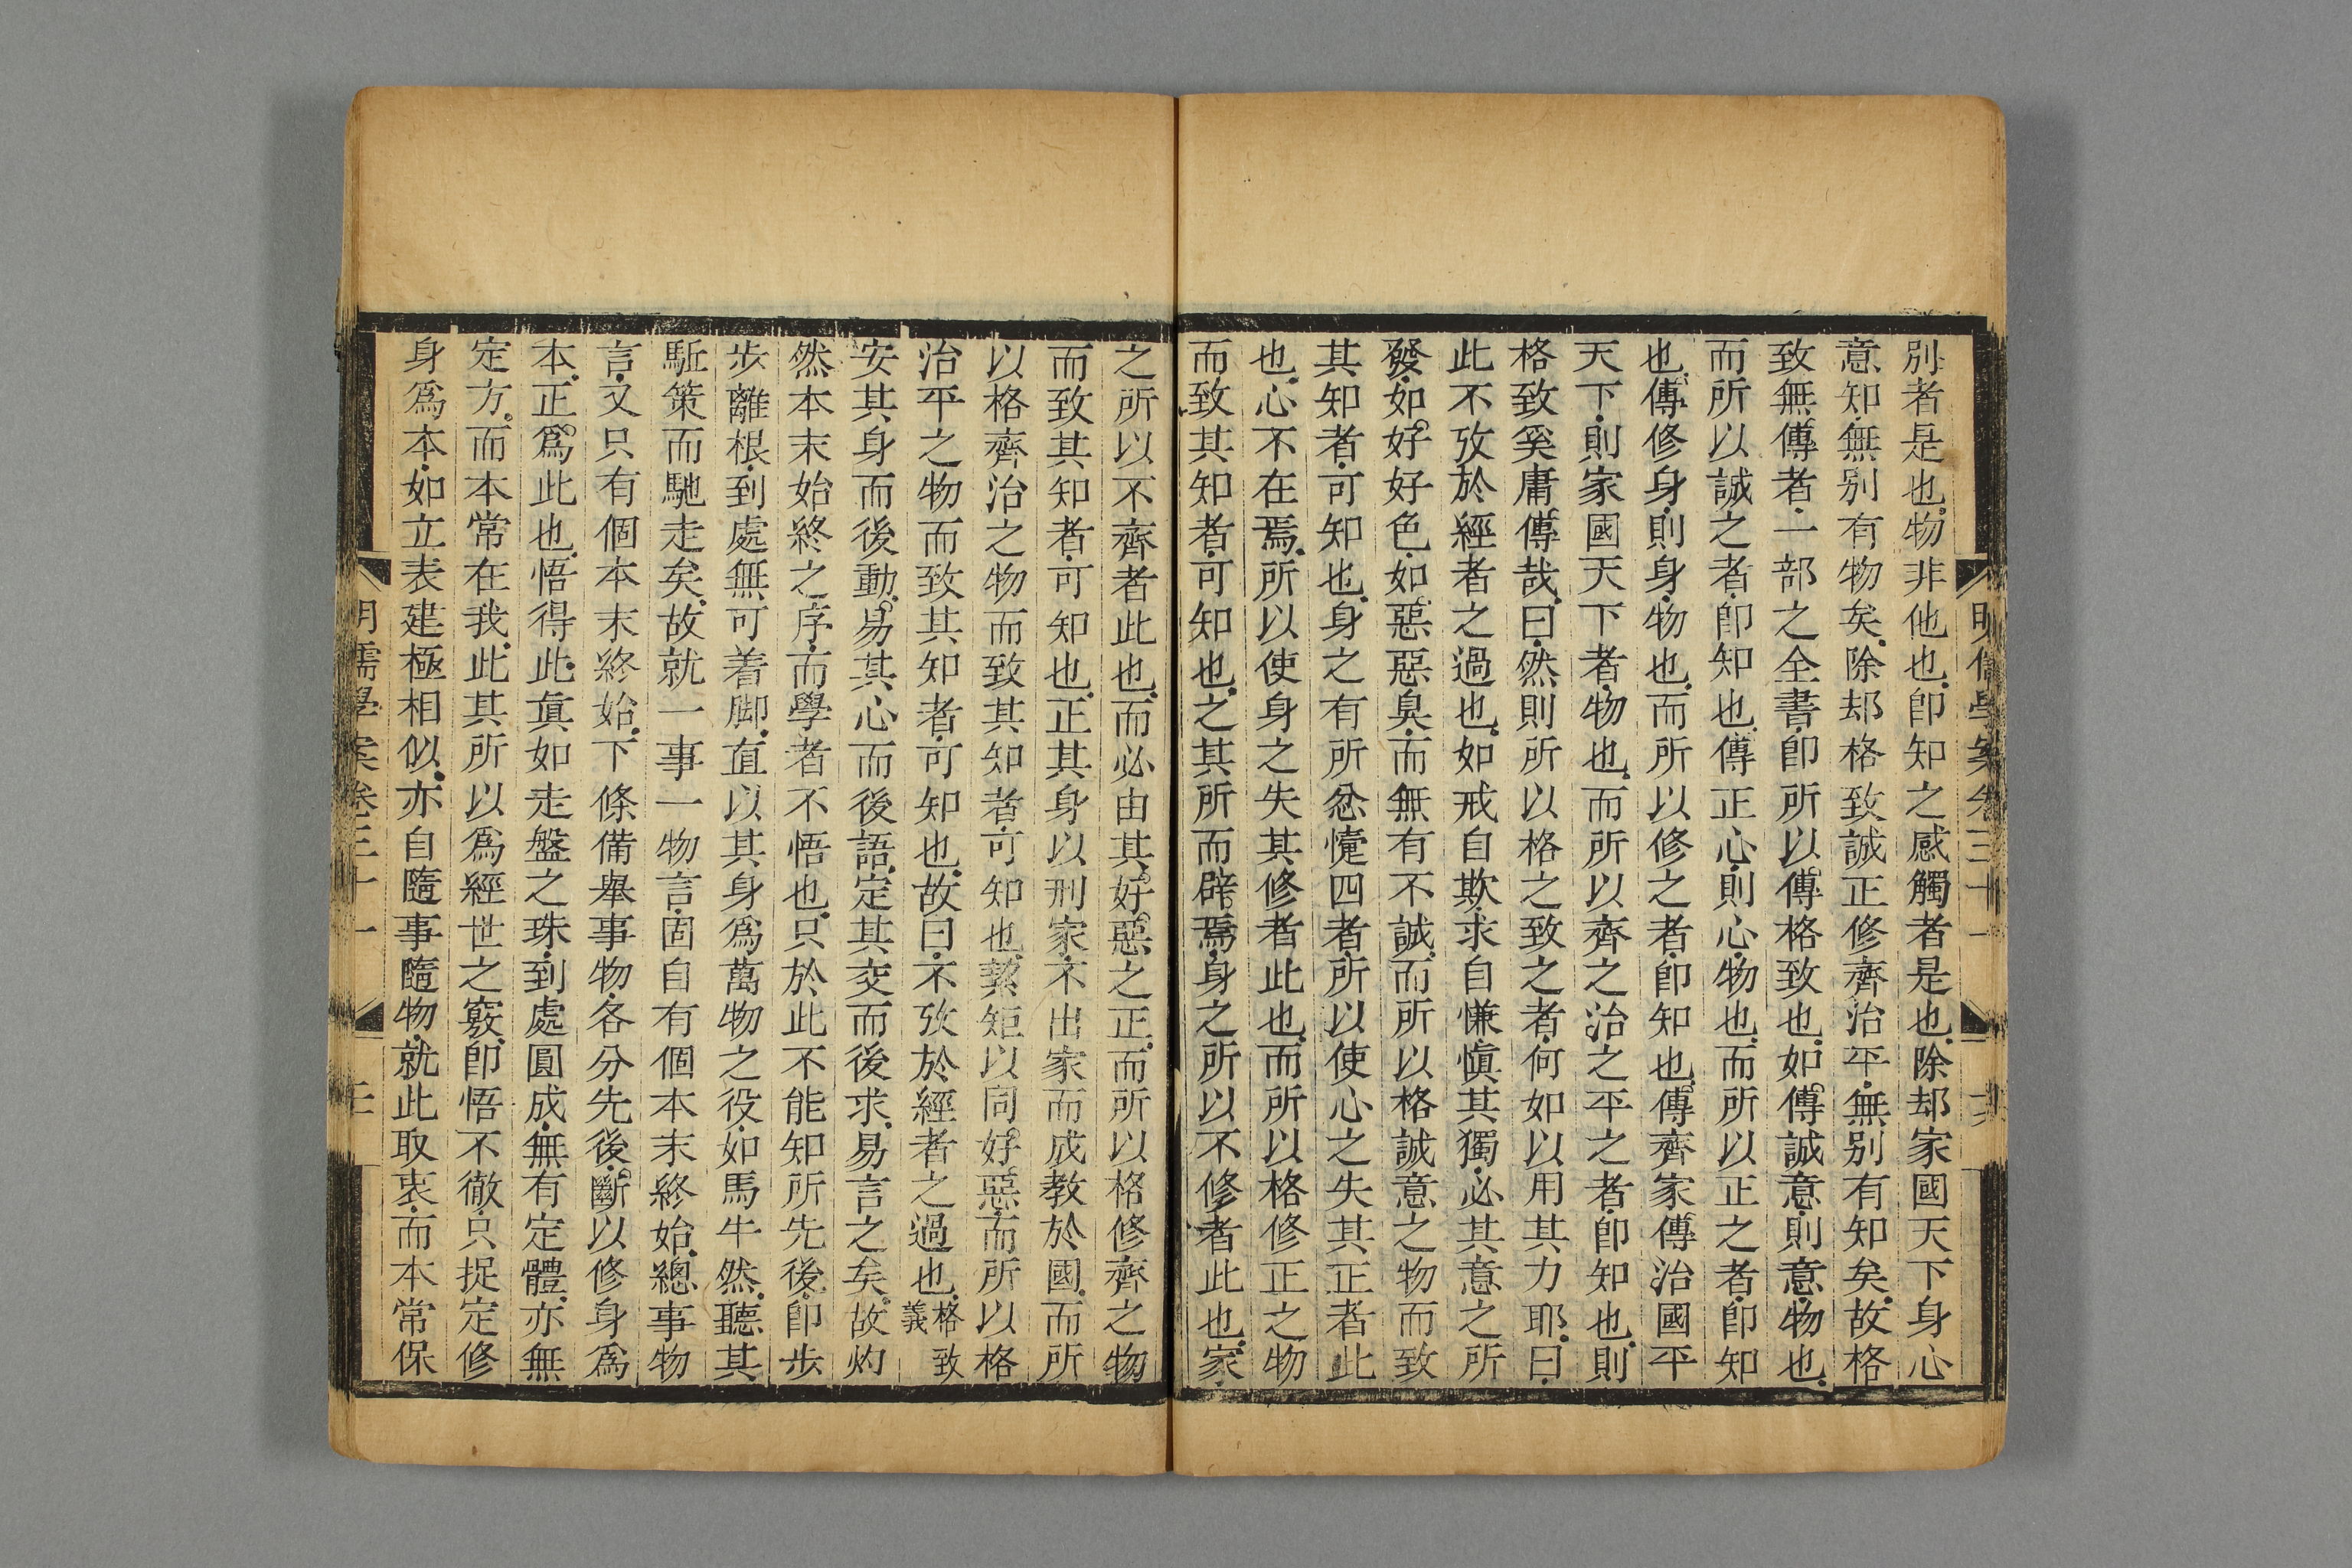 明儒學案卷三十一
六
別者是也物非他也卽知之感觸者是也除却家國天下身心
意知無別有物矣除却格致誠正修齊治平無別有知矣故格
致無傳者一部之全書卽所以傳格致也如傳誠意則意物也
而所以誠之者卽知也傳正心則心物也而所以正之者卽知
也傳修身則身物也而所以修之者卽知也傳齊家傳治國平
天下則家國天下者物也而所以齊之治之平之者卽知也則
格致奚庸傳哉曰然則所以格之致之者何如以用其力耶曰
此不攷於經者之過也如戒自欺求自慊愼其獨必其意之所
發如好好色如惡惡臭而無有不誠而所以格誠意之物而致
其知者可知也身之有所忿懥四者所以使心之失其正者此
也心不在焉所以使身之失其修者此也而所以格修正之物
而致其知者可知也之其所而辟焉身之所以不修者此也家
之所以不齊者此也而必由其好惡之正而所以格修齊之物
而致其知者可知也正其身以刑家不出家而成教於國而所
以格齊治之物而致其知者可知也絜矩以同好惡而所以格
治平之物而致其知者可知也故曰不攷於經者之過也格致義
安其身而後動易其心而後語定其交而後求易言之矣故灼
然本末始終之序而學者不悟也只於此不能知所先後卽步
步離根到處無可着脚直以其身爲萬物之役如馬牛然聽其
駈策而馳走矣故就一事一物言固自有個本末終始總事物
言又只有個本末終始下條備舉事物各分先後斷以修身爲
本正爲此也悟得此眞如走盤之珠到處圓成無有定體亦無
定方而本常在我此其所以爲經世之竅卽悟不徹只捉定修
身爲本如立表建極相似亦自隨事隨物就此取衷而本常保
明儒學案卷三十一